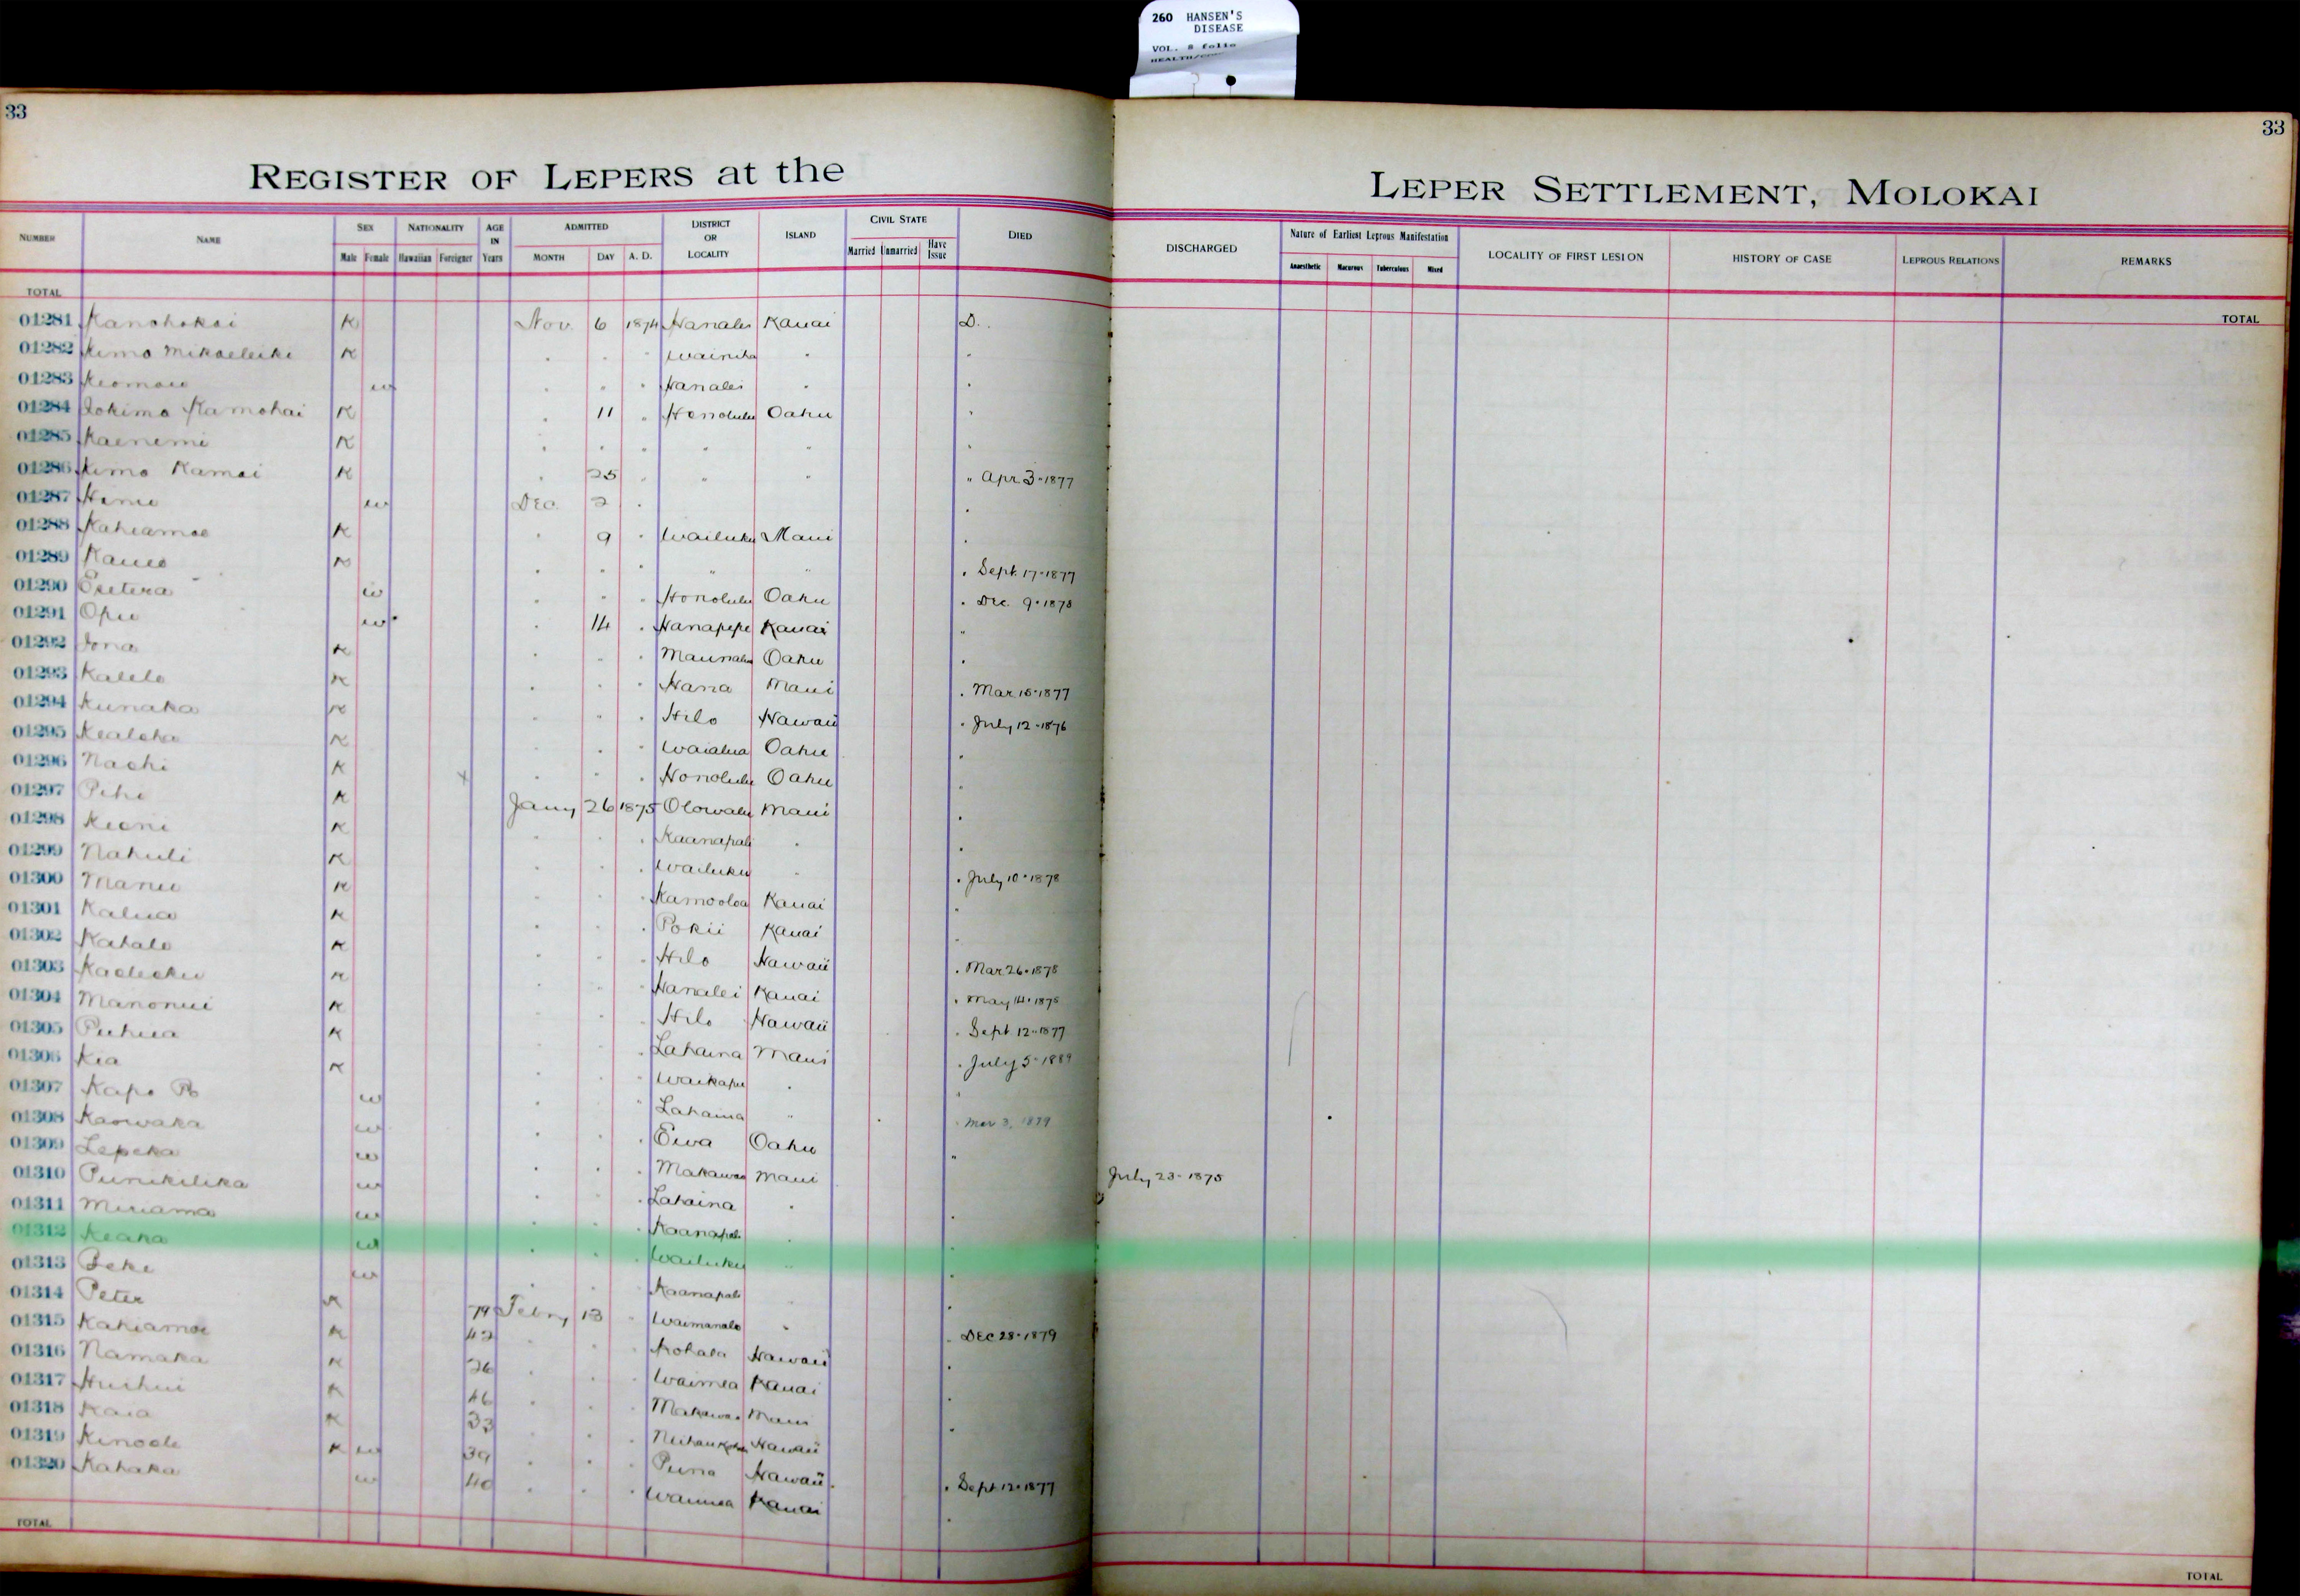 260 HANSEN'S
DISEASE
VOL. 8 folio
33
33
REGISTER OF LEPERS at the LEPER SETTLEMENT, MOLOKAI
NUMBER NAME SEX Male Female NATIONALITY Hawaiian Foreigner AGE IN Years ADMITTED MONTH DAY A. D. DISTRICT OR LOCALITY ISLAND CIVIL STATE Married Unmarried Have Issue DIED DISCHARGED Nature of Earliest Leprous Manifestation Anaesthetic Macurous Tuberculous Mixed LOCALITY OF FIRST LESION HISTORY OF CASE LEPROUS RELATIONS REMARKS
TOTAL TOTAL
01281 Kanohokai K Nov. 6 1874 Hanalei Kauai D.
01282 Kimo Mikaeleiki K " " " Wainiha " "
01283 w " " " Hanalei " "
01284 Iokimo Kamohai K " 11 " Honolulu Oahu "
01285 Kaenemi K " " " " " "
01286 Kimo Kamai K " 25 " " " " Apr 3-1877
01287 w Dec. 2 " "
01288 Kahiamoe K " 9 " Wailuku Maui "
01289 K " " " " " " Sept. 17-1877
01290 w " " " Honolulu Oahu " Dec. 9-1878
01291 Opu w " 14 " Hanapepe Kauai "
01292 Iona K " " " Oahu "
01293 Kalelo K " " " Hana Maui " Mar 15-1877
01294 Kunaka K " " " Hilo Hawaii " July 12-1876
01295 Kealoha K " " " Waialua Oahu "
01296 Naohi K " " " Honolulu Oahu "
01297 Pihi K Jany 26 1875 Olowalu Maui "
01298 Keoni K " " " Kaanapali " "
01299 Nahuli K " " " Wailuku " " July 10-1878
01300 Manu K " " " Kamooloa Kauai "
01301 Kalua K " " " Pokii Kauai "
01302 Kahalo K " " " Hilo Hawaii " Mar 26-1878
01303 K " " " Hanalei Kauai " May 14-1875
01304 Manonui K " " " Hilo Hawaii " Sept 12-1877
01305 Puhua K " " " Lahaina Maui " July 5-1889
01306 Kia K " " " Waikapu " "
01307 Kapo w " " " Lahaina " " Mar 3, 1879
01308 Kaowaka w " " " Ewa Oahu "
01309 Lepeka w " " " Makawao Maui July 23-1875
01310 Punikilika w " " " Lahaina " "
01311 Miriama w " " " Kaanapali " "
01312 Keaka w " " " Wailuku " "
01313 Beke w " " " Kaanapali " "
01314 Peter K 79 Febry 13 " Waimanalo " " Dec 28-1879
01315 Kahiamoe K 42 " " " Kohala Hawaii "
01316 Namaka K 26 " " " Waimea Kauai "
01317 Huihui K 46 " " " Makawao Maui "
01318 Kaia K 33 " " " Hawaii
01319 Kinoole K w 39 " " " Puna Hawaii " Sept. 12-1877
01320 Kahaka w 40 " " " Waimea Kauai "
TOTAL TOTAL